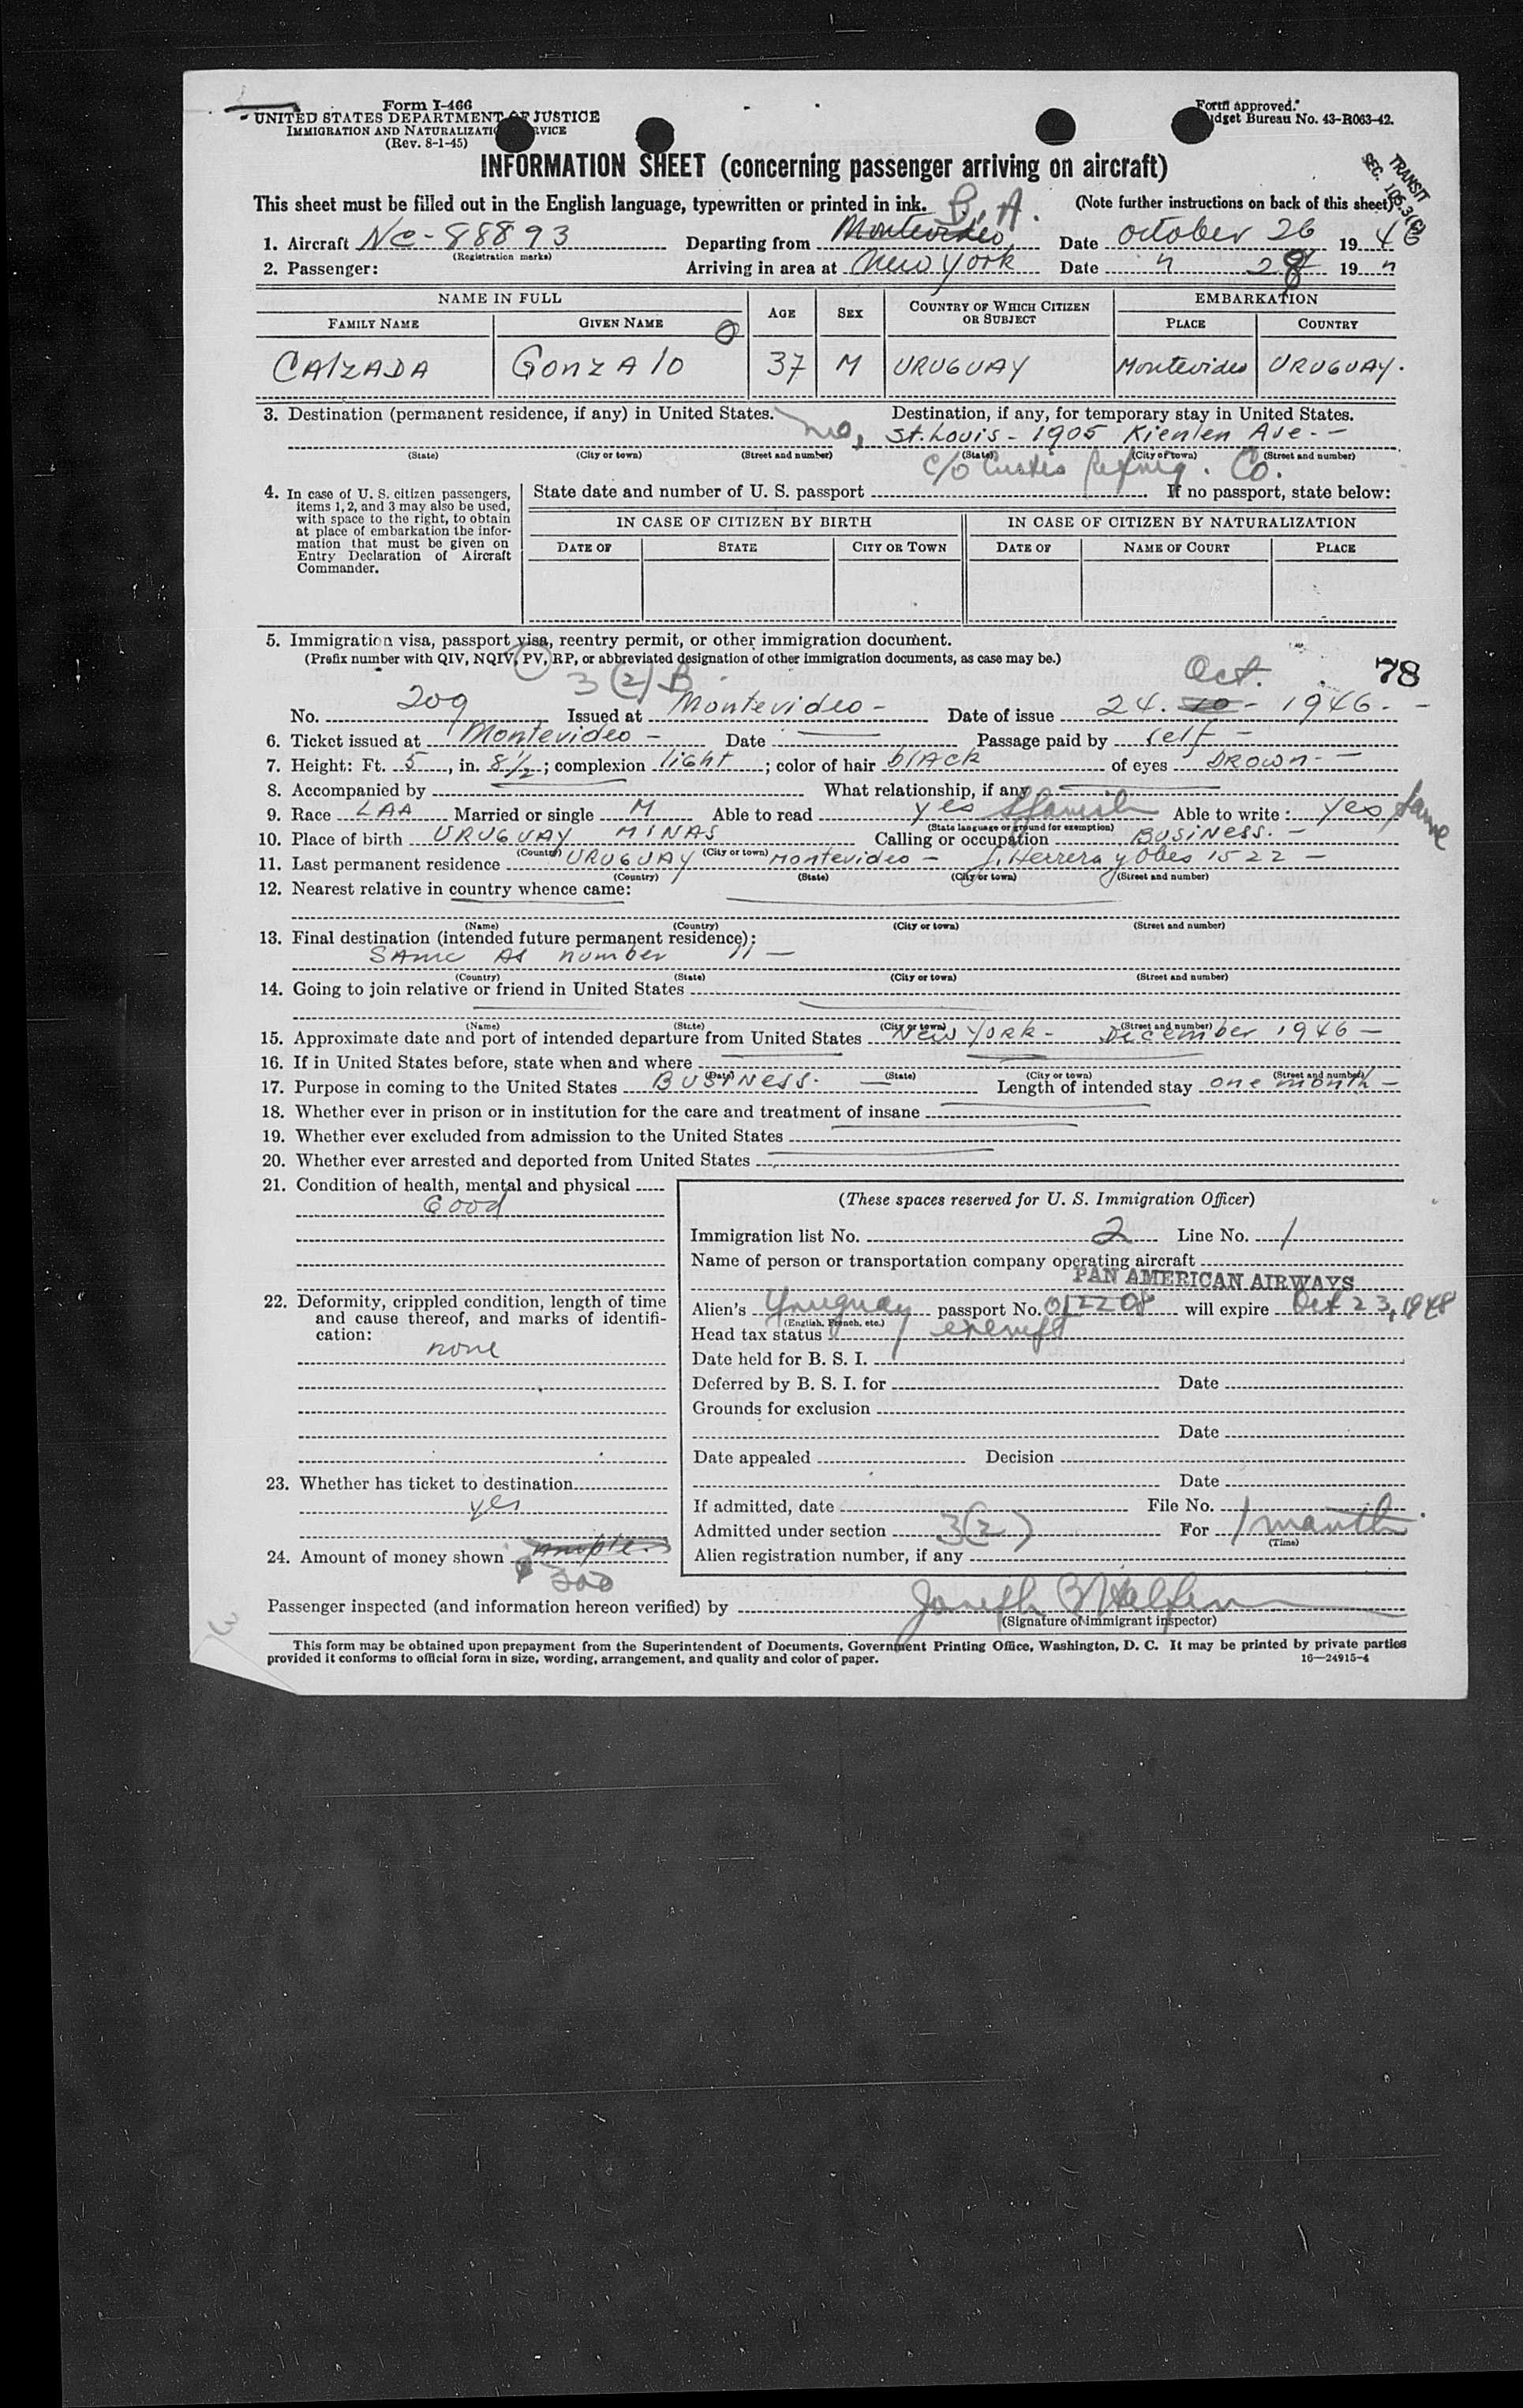 Form I-466
UNITED STATES DEPARTMENT OF JUSTICE
IMMIGRATION AND NATURALIZATION SERVICE
(Rev. 8-1-45)
Form approved.
Budget Bureau No. 43-R063-42.
INFORMATION SHEET (concerning passenger arriving on aircraft)
TRANSIT
SEC. 105.3(C)
This sheet must be filled out in the English language, typewritten or printed in ink. (Note further instructions on back of this sheet)
B. A.
1. Aircraft NC-88893 Departing from Montevideo, Date October 26 1946
(Registration marks)
2. Passenger: Arriving in area at New York Date " 28 19 "
NAME IN FULL AGE SEX COUNTRY OF WHICH CITIZEN OR SUBJECT EMBARKATION
FAMILY NAME GIVEN NAME PLACE COUNTRY
CAlZADA GonzAlo 37 M URUGUAY Montevideo URUGUAY.
3. Destination (permanent residence, if any) in United States. Destination, if any, for temporary stay in United States.
St. Louis - 1905 Kienlen Ave. -
(State) (City or town) (Street and number) (State) (City or town) (Street and number)
c/o Co.
4. In case of U. S. citizen passengers, items 1, 2, and 3 may also be used, with space to the right, to obtain at place of embarkation the information that must be given on Entry Declaration of Aircraft Commander.
State date and number of U. S. passport If no passport, state below:
IN CASE OF CITIZEN BY BIRTH IN CASE OF CITIZEN BY NATURALIZATION
DATE OF STATE CITY OR TOWN DATE OF NAME OF COURT PLACE
5. Immigration visa, passport visa, reentry permit, or other immigration document.
(Prefix number with QIV, NQIV, PV, RP, or abbreviated designation of other immigration documents, as case may be.)
3(2) B Oct. 78
No. 209 Issued at Montevideo - Date of issue 24. 10 - 1946 -
6. Ticket issued at Montevideo - Date Passage paid by self -
7. Height: Ft. 5, in. 8½; complexion light; color of hair blACK of eyes BROWN -
8. Accompanied by What relationship, if any
9. Race LAA Married or single M Able to read yes Spanish Able to write: yes, same
(State language or ground for exemption)
10. Place of birth URUGUAY MINAS Calling or occupation BUSINESS. -
(Country) (City or town)
11. Last permanent residence URUGUAY Montevideo - J. Herrera y Obes 1522 -
(Country) (State) (City or town) (Street and number)
12. Nearest relative in country whence came:
(Name) (Country) (City or town) (Street and number)
13. Final destination (intended future permanent residence):
SAme As number 11 -
(Country) (State) (City or town) (Street and number)
14. Going to join relative or friend in United States
(Name) (State) (City or town) (Street and number)
15. Approximate date and port of intended departure from United States New York - December 1946 -
16. If in United States before, state when and where
(Date) (State) (City or town) (Street and number)
17. Purpose in coming to the United States BUSINess. - Length of intended stay one month -
18. Whether ever in prison or in institution for the care and treatment of insane
19. Whether ever excluded from admission to the United States
20. Whether ever arrested and deported from United States
21. Condition of health, mental and physical
Good
22. Deformity, crippled condition, length of time and cause thereof, and marks of identification:
none
23. Whether has ticket to destination
yes
24. Amount of money shown ample.
$300
(These spaces reserved for U. S. Immigration Officer)
Immigration list No. 2 Line No. 1
Name of person or transportation company operating aircraft
PAN AMERICAN AIRWAYS
Alien's Uruguay passport No. 012208 will expire Oct 23, 1948
(English, French, etc.)
Head tax status exempt
Date held for B. S. I.
Deferred by B. S. I. for Date
Grounds for exclusion
Date
Date appealed Decision
Date
If admitted, date File No.
Admitted under section 3(2) For 1 month
(Time)
Alien registration number, if any
Passenger inspected (and information hereon verified) by Joseph
(Signature of immigrant inspector)
This form may be obtained upon prepayment from the Superintendent of Documents, Government Printing Office, Washington, D. C. It may be printed by private parties
provided it conforms to official form in size, wording, arrangement, and quality and color of paper. 16—24915-4